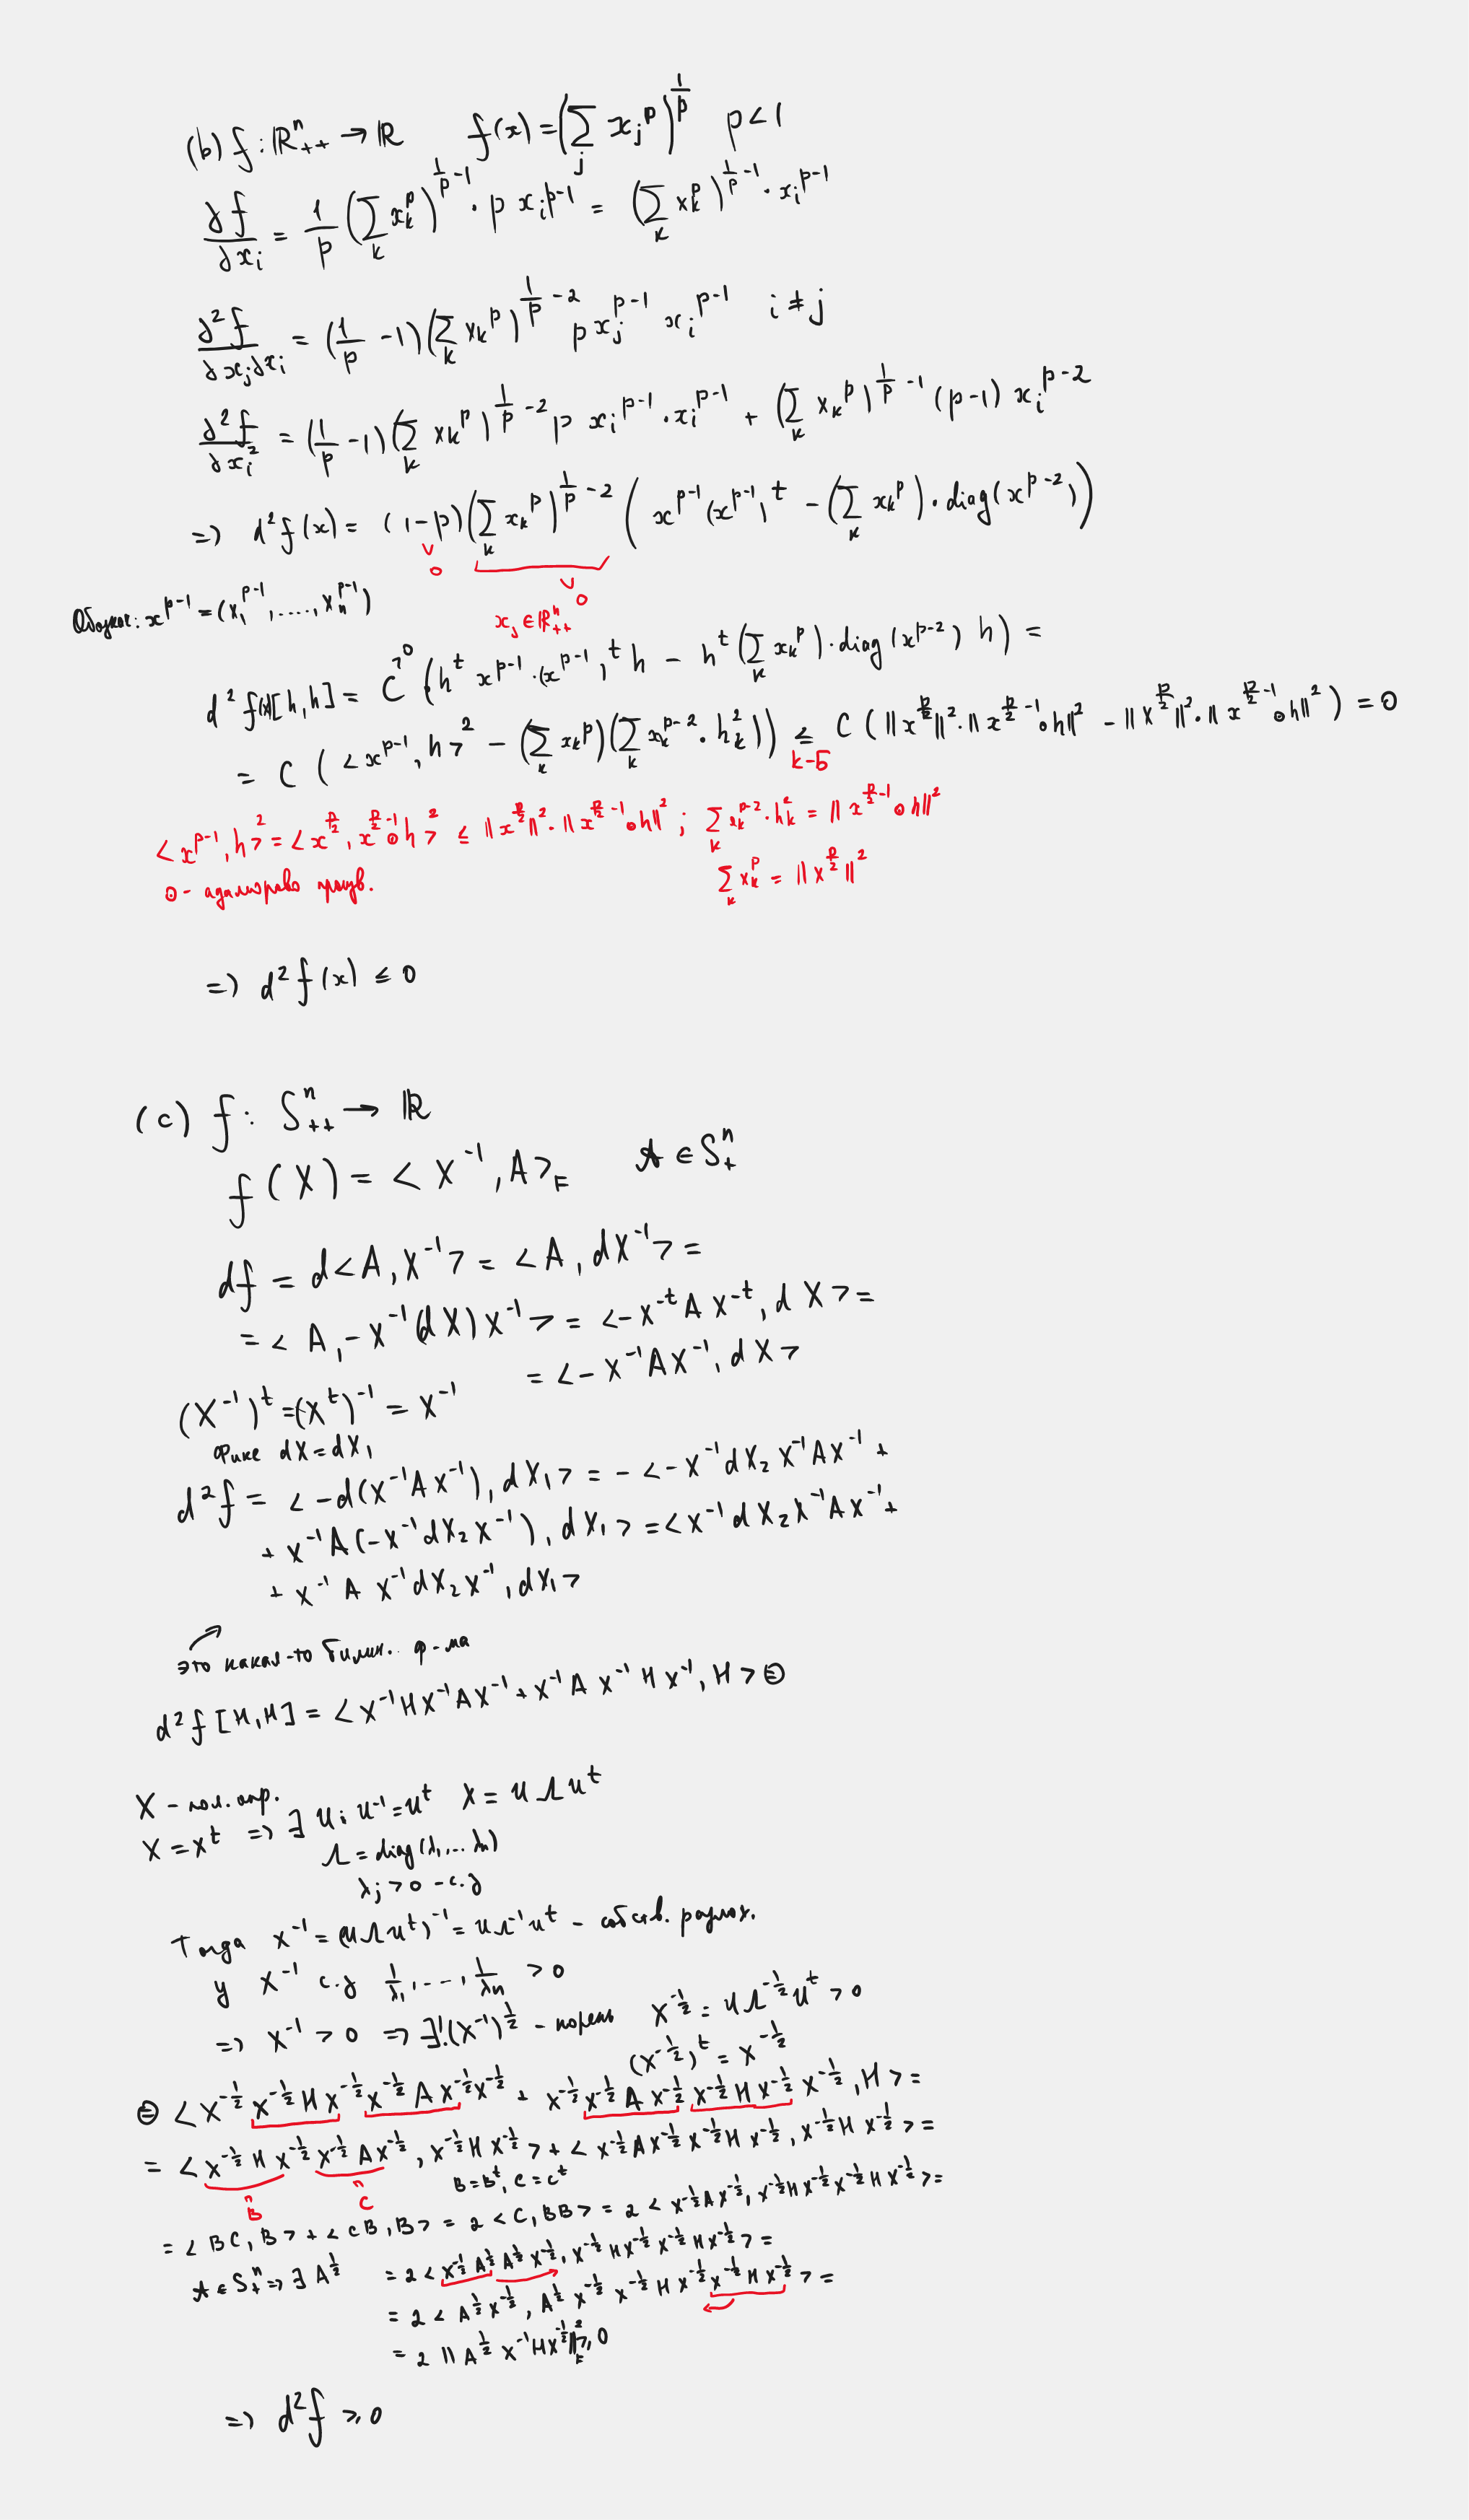 (b) f: ℝⁿ₊₊ → ℝ   f(x) = (∑_j x_j^p)^{1/p}   p < 1
∂f/∂x_i = 1/p (∑_k x_k^p)^{1/p - 1} · p x_i^{p-1} = (∑_k x_k^p)^{1/p - 1} · x_i^{p-1}
∂²f/∂x_j∂x_i = (1/p - 1)(∑_k x_k^p)^{1/p - 2} p x_j^{p-1} x_i^{p-1}   i ≠ j
∂²f/∂x_i² = (1/p - 1)(∑_k x_k^p)^{1/p - 2} p x_i^{p-1} · x_i^{p-1} + (∑_k x_k^p)^{1/p - 1} (p-1) x_i^{p-2}
=> d²f(x) = (1-p)(∑_k x_k^p)^{1/p - 2} (x^{p-1}(x^{p-1})^t - (∑_k x_k^p) · diag(x^{p-2}))
∨ 0   ∨ 0
x_j ∈ ℝⁿ₊₊
x^{p-1} = (x_1^{p-1}, ....., x_n^{p-1})
d²f(x)[h,h] = C^{>0} (h^t x^{p-1} · (x^{p-1})^t h - h^t (∑_k x_k^p) · diag(x^{p-2}) h) =
= C (<x^{p-1}, h>² - (∑_k x_k^p)(∑_k x_k^{p-2} · h_k²)) ≤ C (||x^{p/2}||² · ||x^{p/2 - 1} ⊙ h||² - ||x^{p/2}||² · ||x^{p/2 - 1} ⊙ h||²) = 0
к-Б
<x^{p-1}, h>² = <x^{p/2}, x^{p/2 - 1} ⊙ h>² ≤ ||x^{p/2}||² · ||x^{p/2 - 1} ⊙ h||² ; ∑_k x_k^{p-2} · h_k² = ||x^{p/2 - 1} ⊙ h||²
∑_k x_k^p = ||x^{p/2}||²
⊙ - адамарово произв.
=> d²f(x) ≤ 0
(c) f: Sⁿ₊₊ → ℝ
f(X) = <X^{-1}, A>_F   A ∈ Sⁿ₊
df = d<A, X^{-1}> = <A, dX^{-1}> =
= <A, -X^{-1}(dX)X^{-1}> = <-X^{-t}AX^{-t}, dX> =
= <-X^{-1}AX^{-1}, dX>
(X^{-1})^t = (X^t)^{-1} = X^{-1}
Фикс dX = dX_1
d²f = <-d(X^{-1}AX^{-1}), dX_1> = -<-X^{-1}dX_2X^{-1}AX^{-1} +
+ X^{-1}A(-X^{-1}dX_2X^{-1}), dX_1> = <X^{-1}dX_2X^{-1}AX^{-1} +
+ X^{-1}AX^{-1}dX_2X^{-1}, dX_1>
это какая-то билин. ф-ма
d²f[H,H] = <X^{-1}HX^{-1}AX^{-1} + X^{-1}AX^{-1}HX^{-1}, H> ⊜
X - пол. опр.
X = X^t => ∃ U: U^{-1} = U^t   X = UΛU^t
Λ = diag(λ_1, ... λ_n)
λ_j > 0 - с.з
Тогда X^{-1} = (UΛU^t)^{-1} = UΛ^{-1}U^t - собств. разлож.
у X^{-1} с.з 1/λ_1, ..., 1/λ_n > 0
=> X^{-1} > 0 => ∃! (X^{-1})^{1/2} - корень   X^{-1/2} = UΛ^{-1/2}U^t > 0
(X^{-1/2})^t = X^{-1/2}
⊜ <X^{-1/2} X^{-1/2}HX^{-1/2} X^{-1/2}AX^{-1/2} X^{-1/2} + X^{-1/2} X^{-1/2}AX^{-1/2} X^{-1/2}HX^{-1/2} X^{-1/2}, H> =
= <X^{-1/2}HX^{-1/2} X^{-1/2}AX^{-1/2}, X^{-1/2}HX^{-1/2}> + <X^{-1/2}AX^{-1/2} X^{-1/2}HX^{-1/2}, X^{-1/2}HX^{-1/2}> =
B   C   B = B^t, C = C^t
= <BC, B> + <CB, B> = 2<C, BB> = 2<X^{-1/2}AX^{-1/2}, X^{-1/2}HX^{-1/2}X^{-1/2}HX^{-1/2}> =
A ∈ Sⁿ₊ => ∃ A^{1/2}   = 2<X^{-1/2}A^{1/2} A^{1/2}X^{-1/2}, X^{-1/2}HX^{-1/2}X^{-1/2}HX^{-1/2}> =
= 2<A^{1/2}X^{-1/2}, A^{1/2}X^{-1/2}X^{-1/2}HX^{-1/2}X^{-1/2}HX^{-1/2}> =
= 2||A^{1/2}X^{-1}HX^{-1/2}||²_F ≥ 0
=> d²f ≥ 0